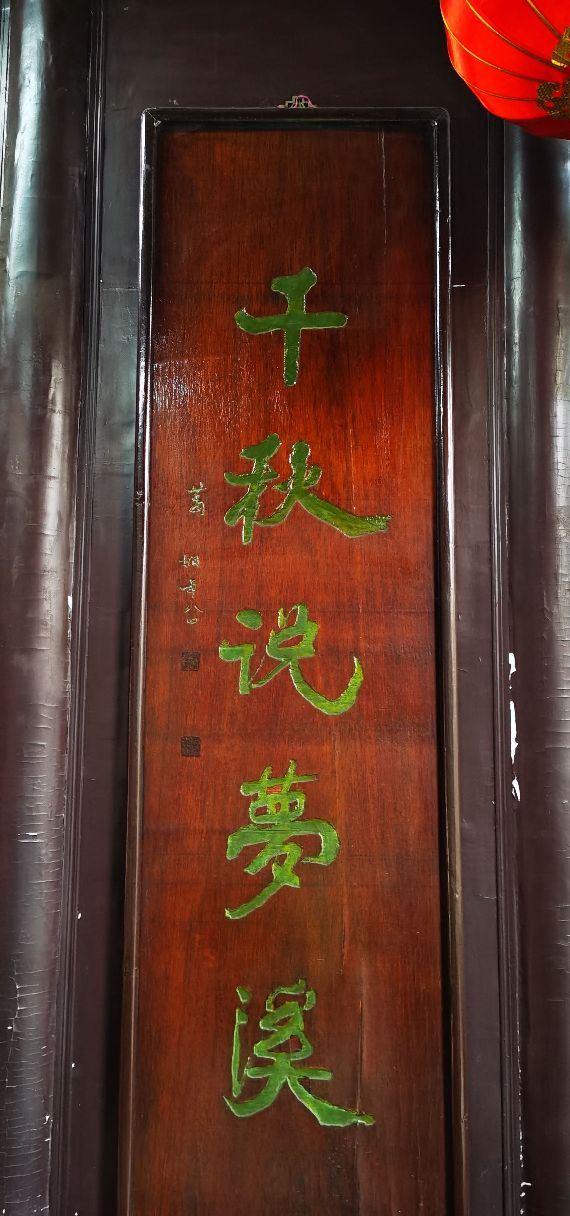 千秋说夢溪